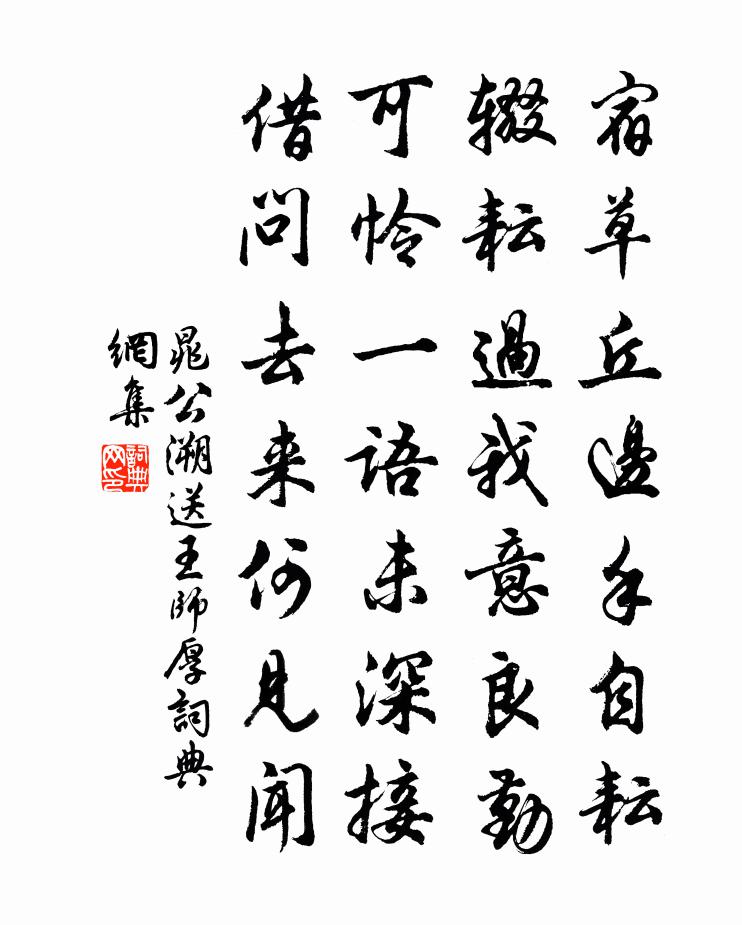 宿草丘邊手自耘
輟耘過我意良勤
可怜一語未深接
借問去来何見聞
晁公溯送王師厚詞典
網集
詞典
网印